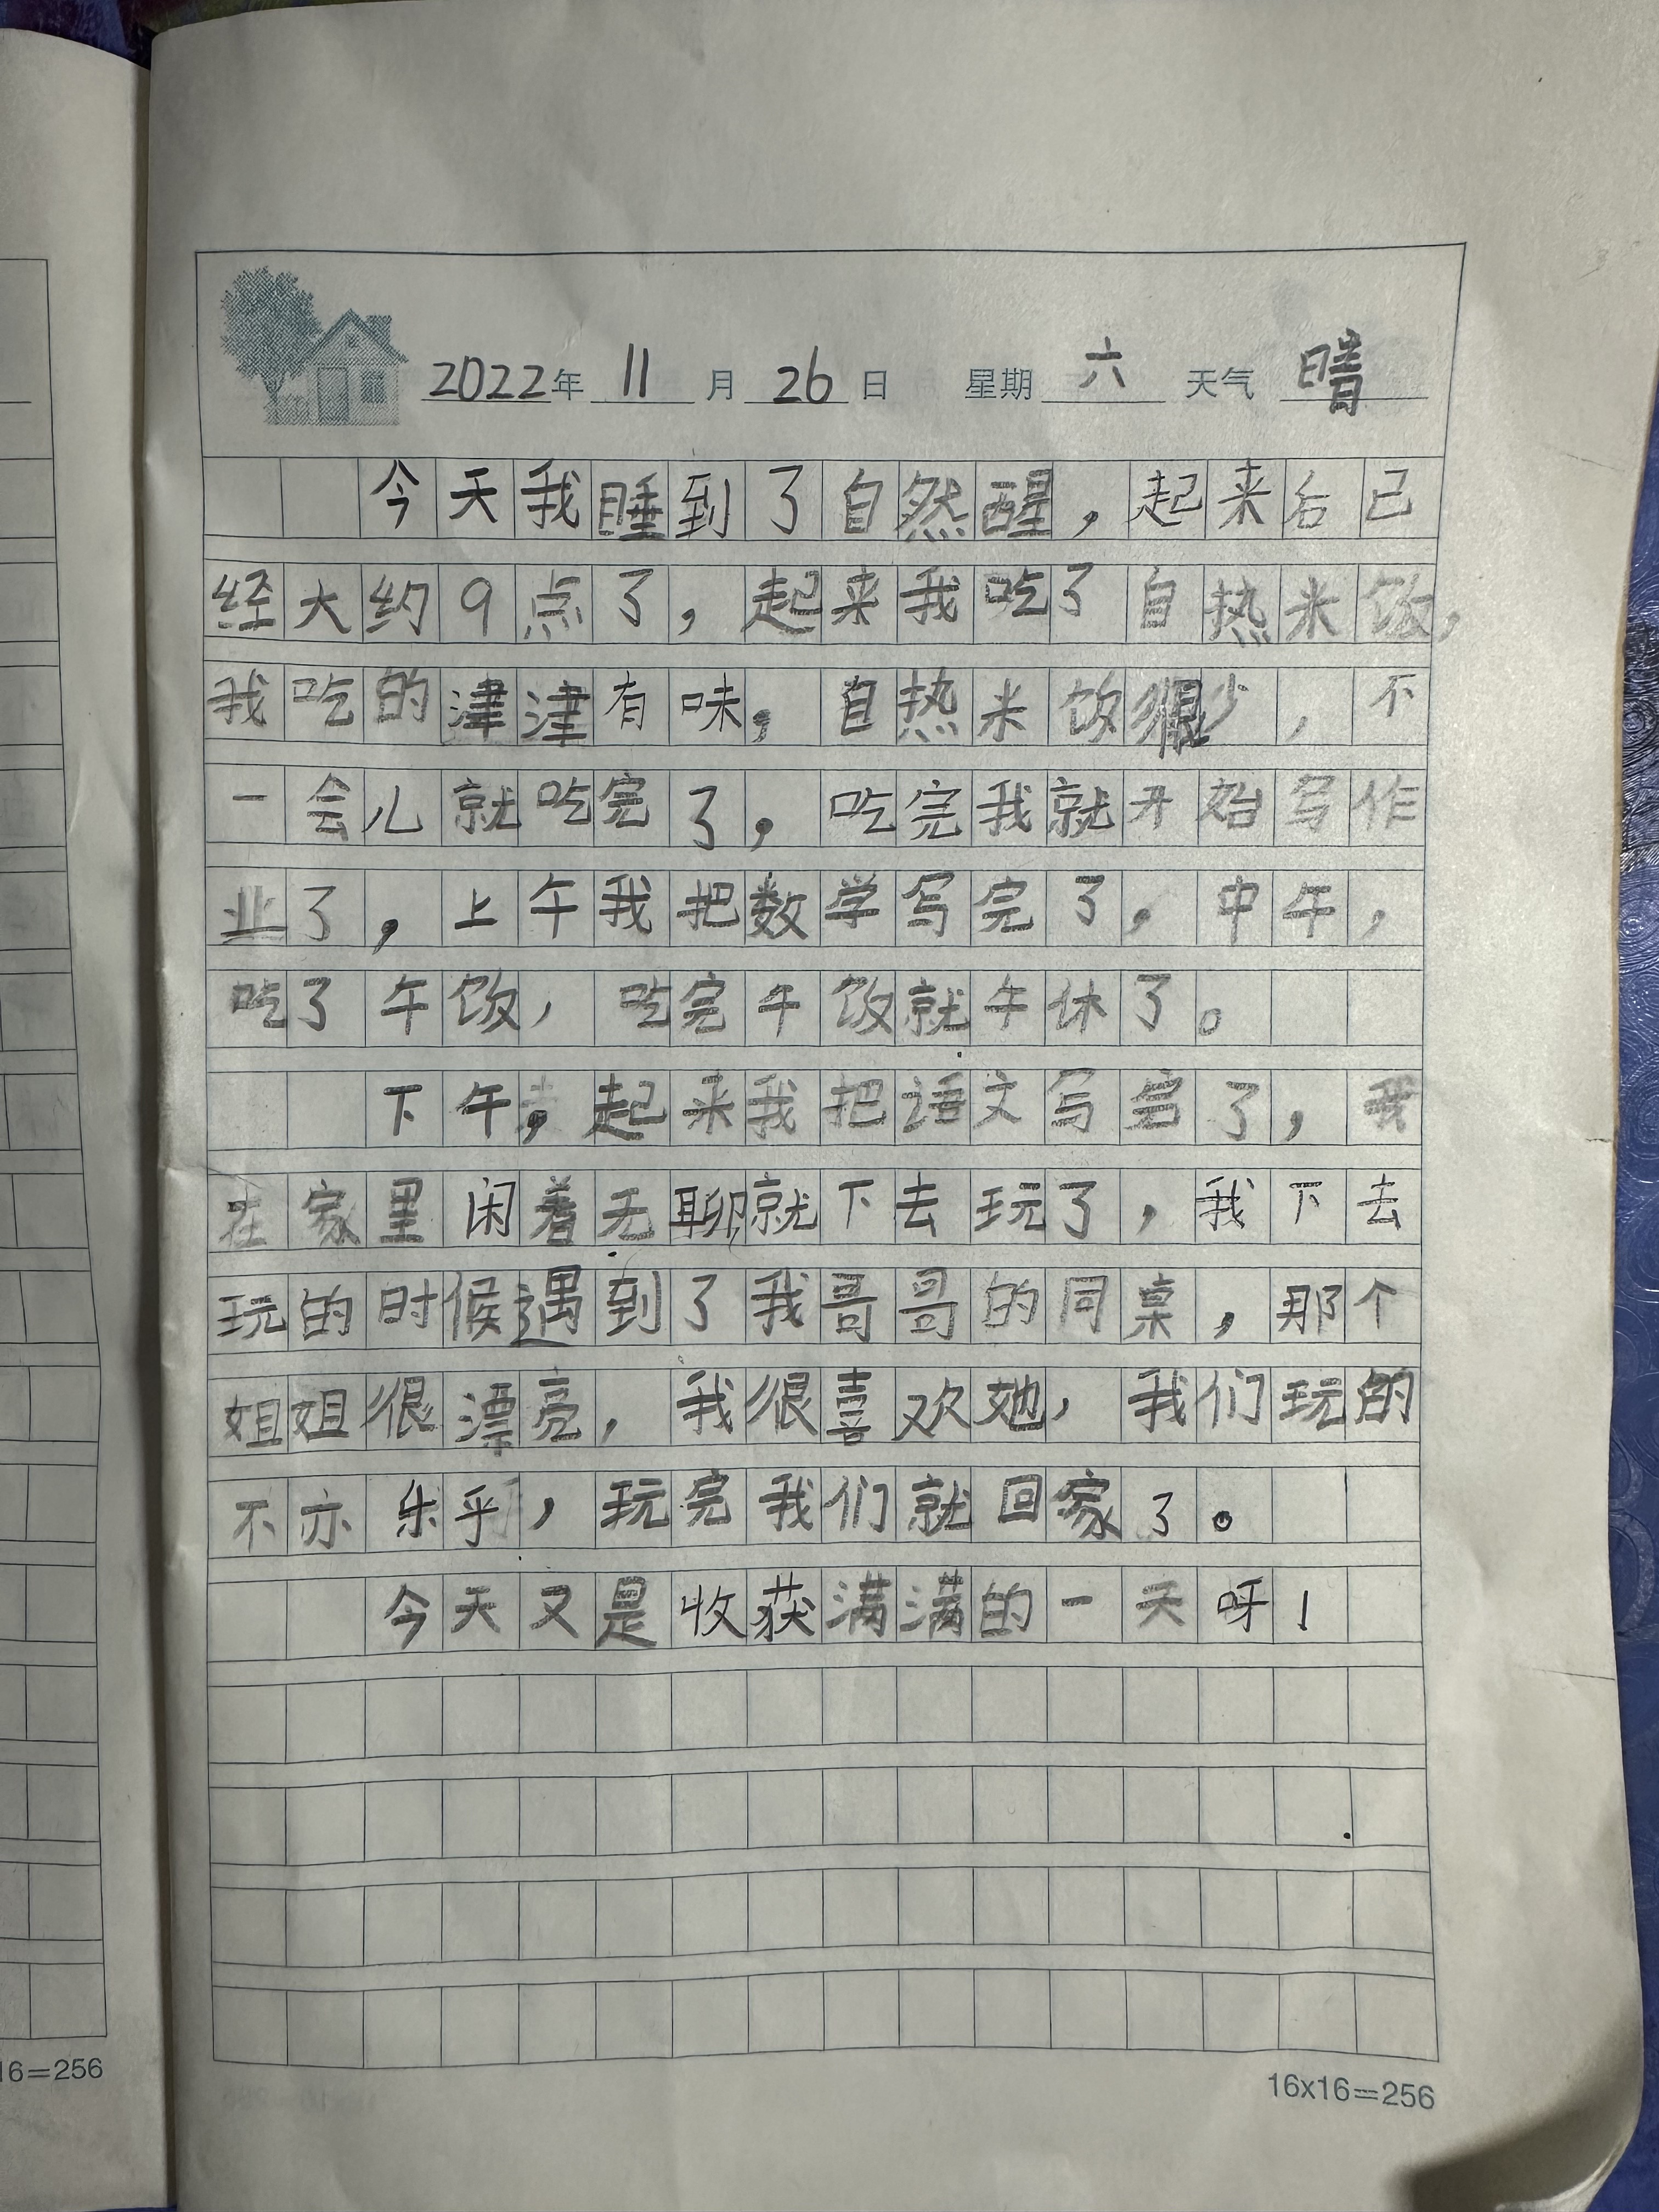 2022年 11 月 26 日 星期 六 天气 晴
今天我睡到了自然醒，起来后已
经大约9点了，起来我吃了自热米饭，
我吃的津津有味，自热米饭很少，不
一会儿就吃完了，吃完我就开始写作
业了，上午我把数学写完了，中午，
吃了午饭，吃完午饭就午休了。
下午，起来我把语文写完了，我
在家里闲着无聊就下去玩了，我下去
玩的时候遇到了我哥哥的同桌，那个
姐姐很漂亮，我很喜欢她，我们玩的
不亦乐乎，玩完我们就回家了。
今天又是收获满满的一天呀！
16=256
16x16=256